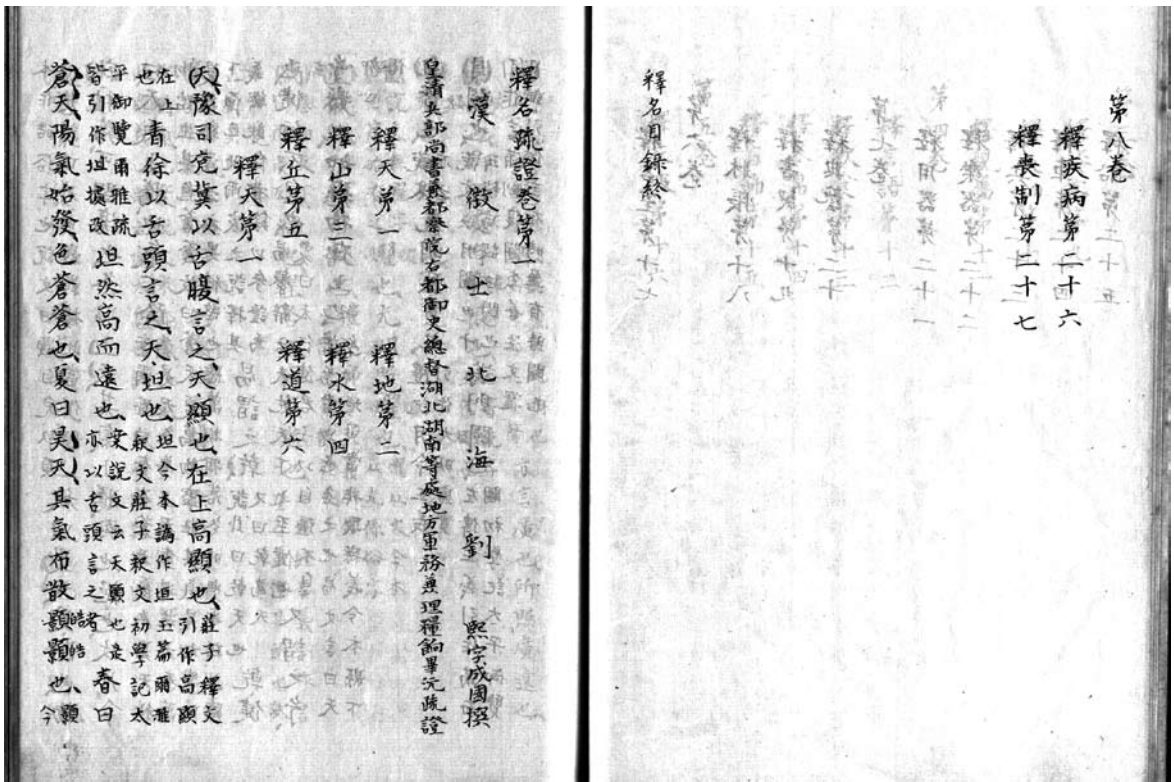 第八卷
釋疾病第二十六
釋喪制第二十七
釋名目錄終
釋名疏證卷第一
漢 徵 士 北 海 劉 熙字成國撰
皇清兵部尚書兼都察院右都御史總督湖北湖南等處地方軍務兼理糧餉畢沅疏證
釋天第一 釋地第二
釋山第三 釋水第四
釋丘第五 釋道第六
釋天第一
天、豫司兗冀以舌腹言之、天、顯也、在上高顯也、莊子釋文引作高顯
在上也青徐以舌頭言之、天、坦也、坦今本譌作垣玉篇爾雅釋文莊子釋文初學記太
平御覽爾雅疏皆引作坦據改坦然高而遠也、案說文云天顚也是亦以舌頭言之者春曰
蒼天、陽氣始發、色蒼蒼也、夏曰昊天、其氣布散顥顥也、顥今
皓皓